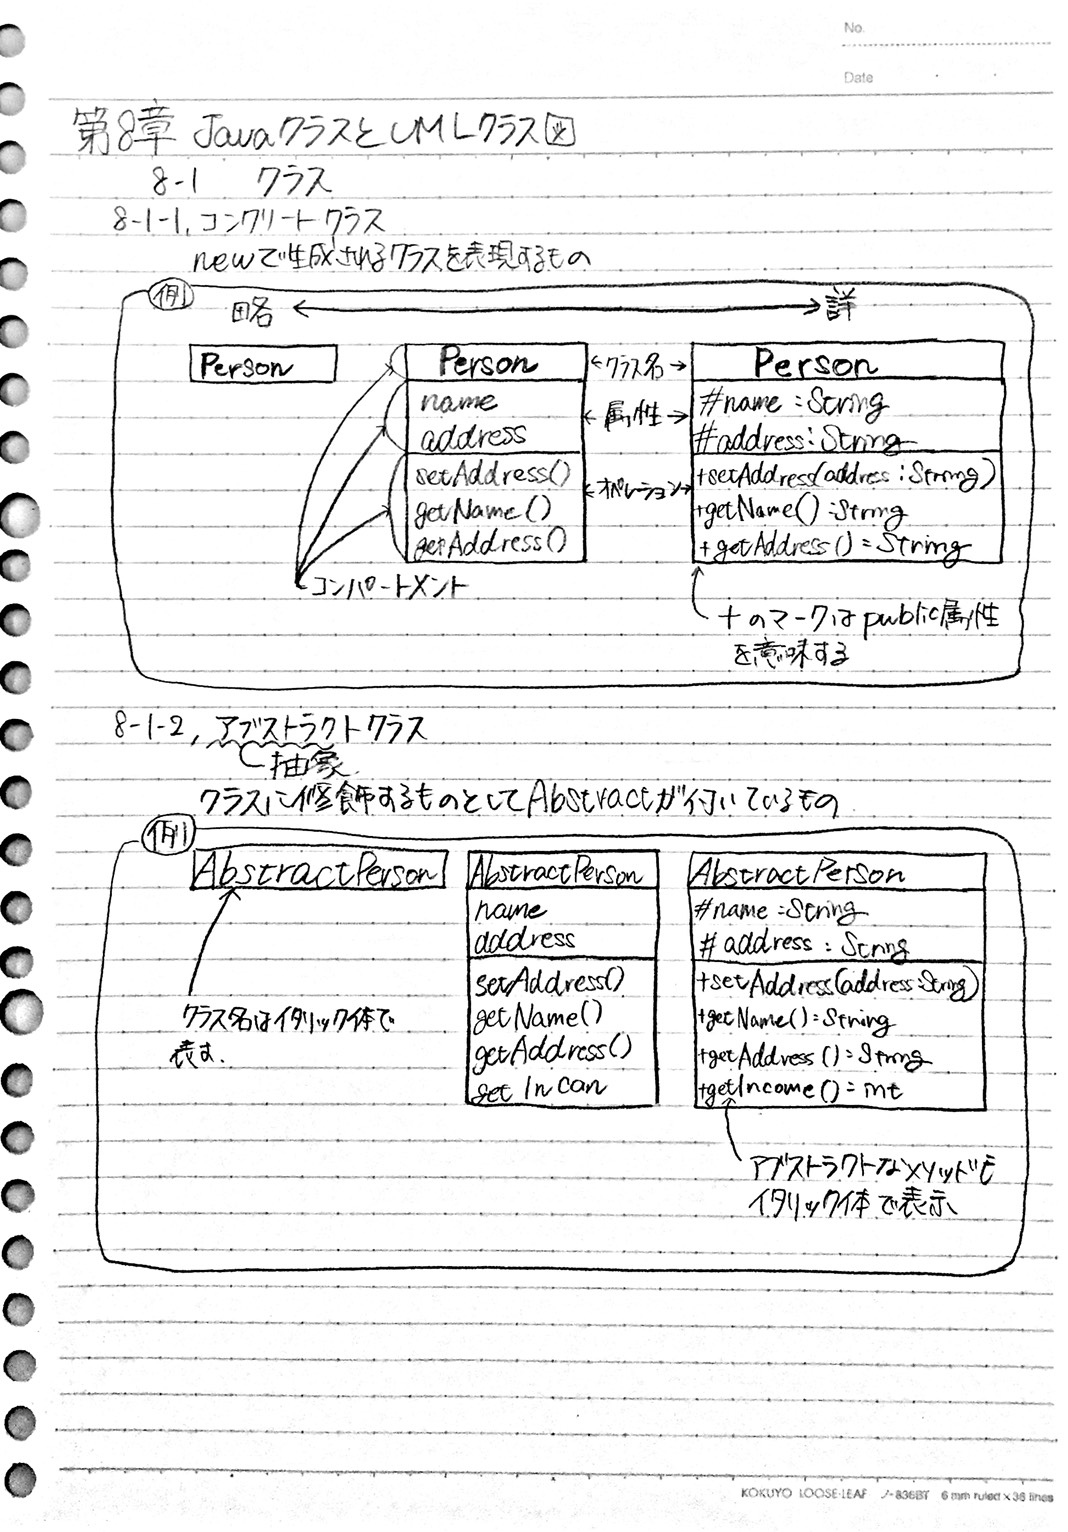 No.
Date
第8章 JavaクラスとUMLクラス図
8-1 クラス
8-1-1, コンクリートクラス
newで生成されるクラスを表現するもの
例
略 ←→ 詳
Person
Person
name
address
setAddress()
getName()
getAddress()
←クラス名→
←属性→
←オペレーション→
Person
#name:String
#address:String
+setAddress(address:String)
+getName():String
+getAddress()=String
コンパートメント
+のマークはpublic属性
を意味する
8-1-2, アブストラクトクラス
抽象
クラスに修飾するものとしてAbstractが付いているもの
例1
AbstractPerson
クラス名はイタリック体で
表す.
AbstractPerson
name
address
setAddress()
getName()
getAddress()
get In can
AbstractPerson
#name:String
#address:String
+setAddress(address:String)
+getName():String
+getAddress():String
+getIncome()=int
アブストラクトなメソッドも
イタリック体で表示
KOKUYO LOOSE-LEAF ノ-836BT 6 mm ruled×36 lines